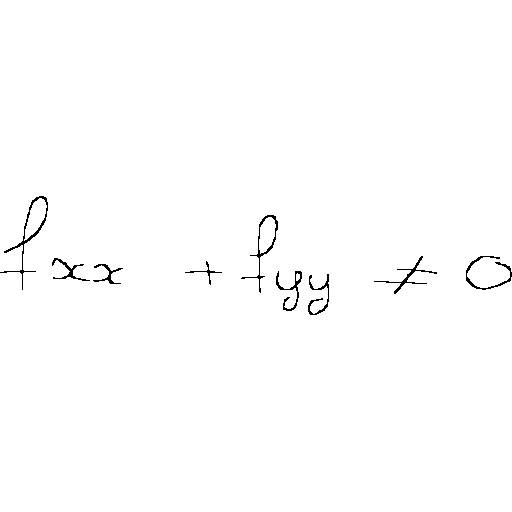 f_{xx} + f_{yy} ≠ 0